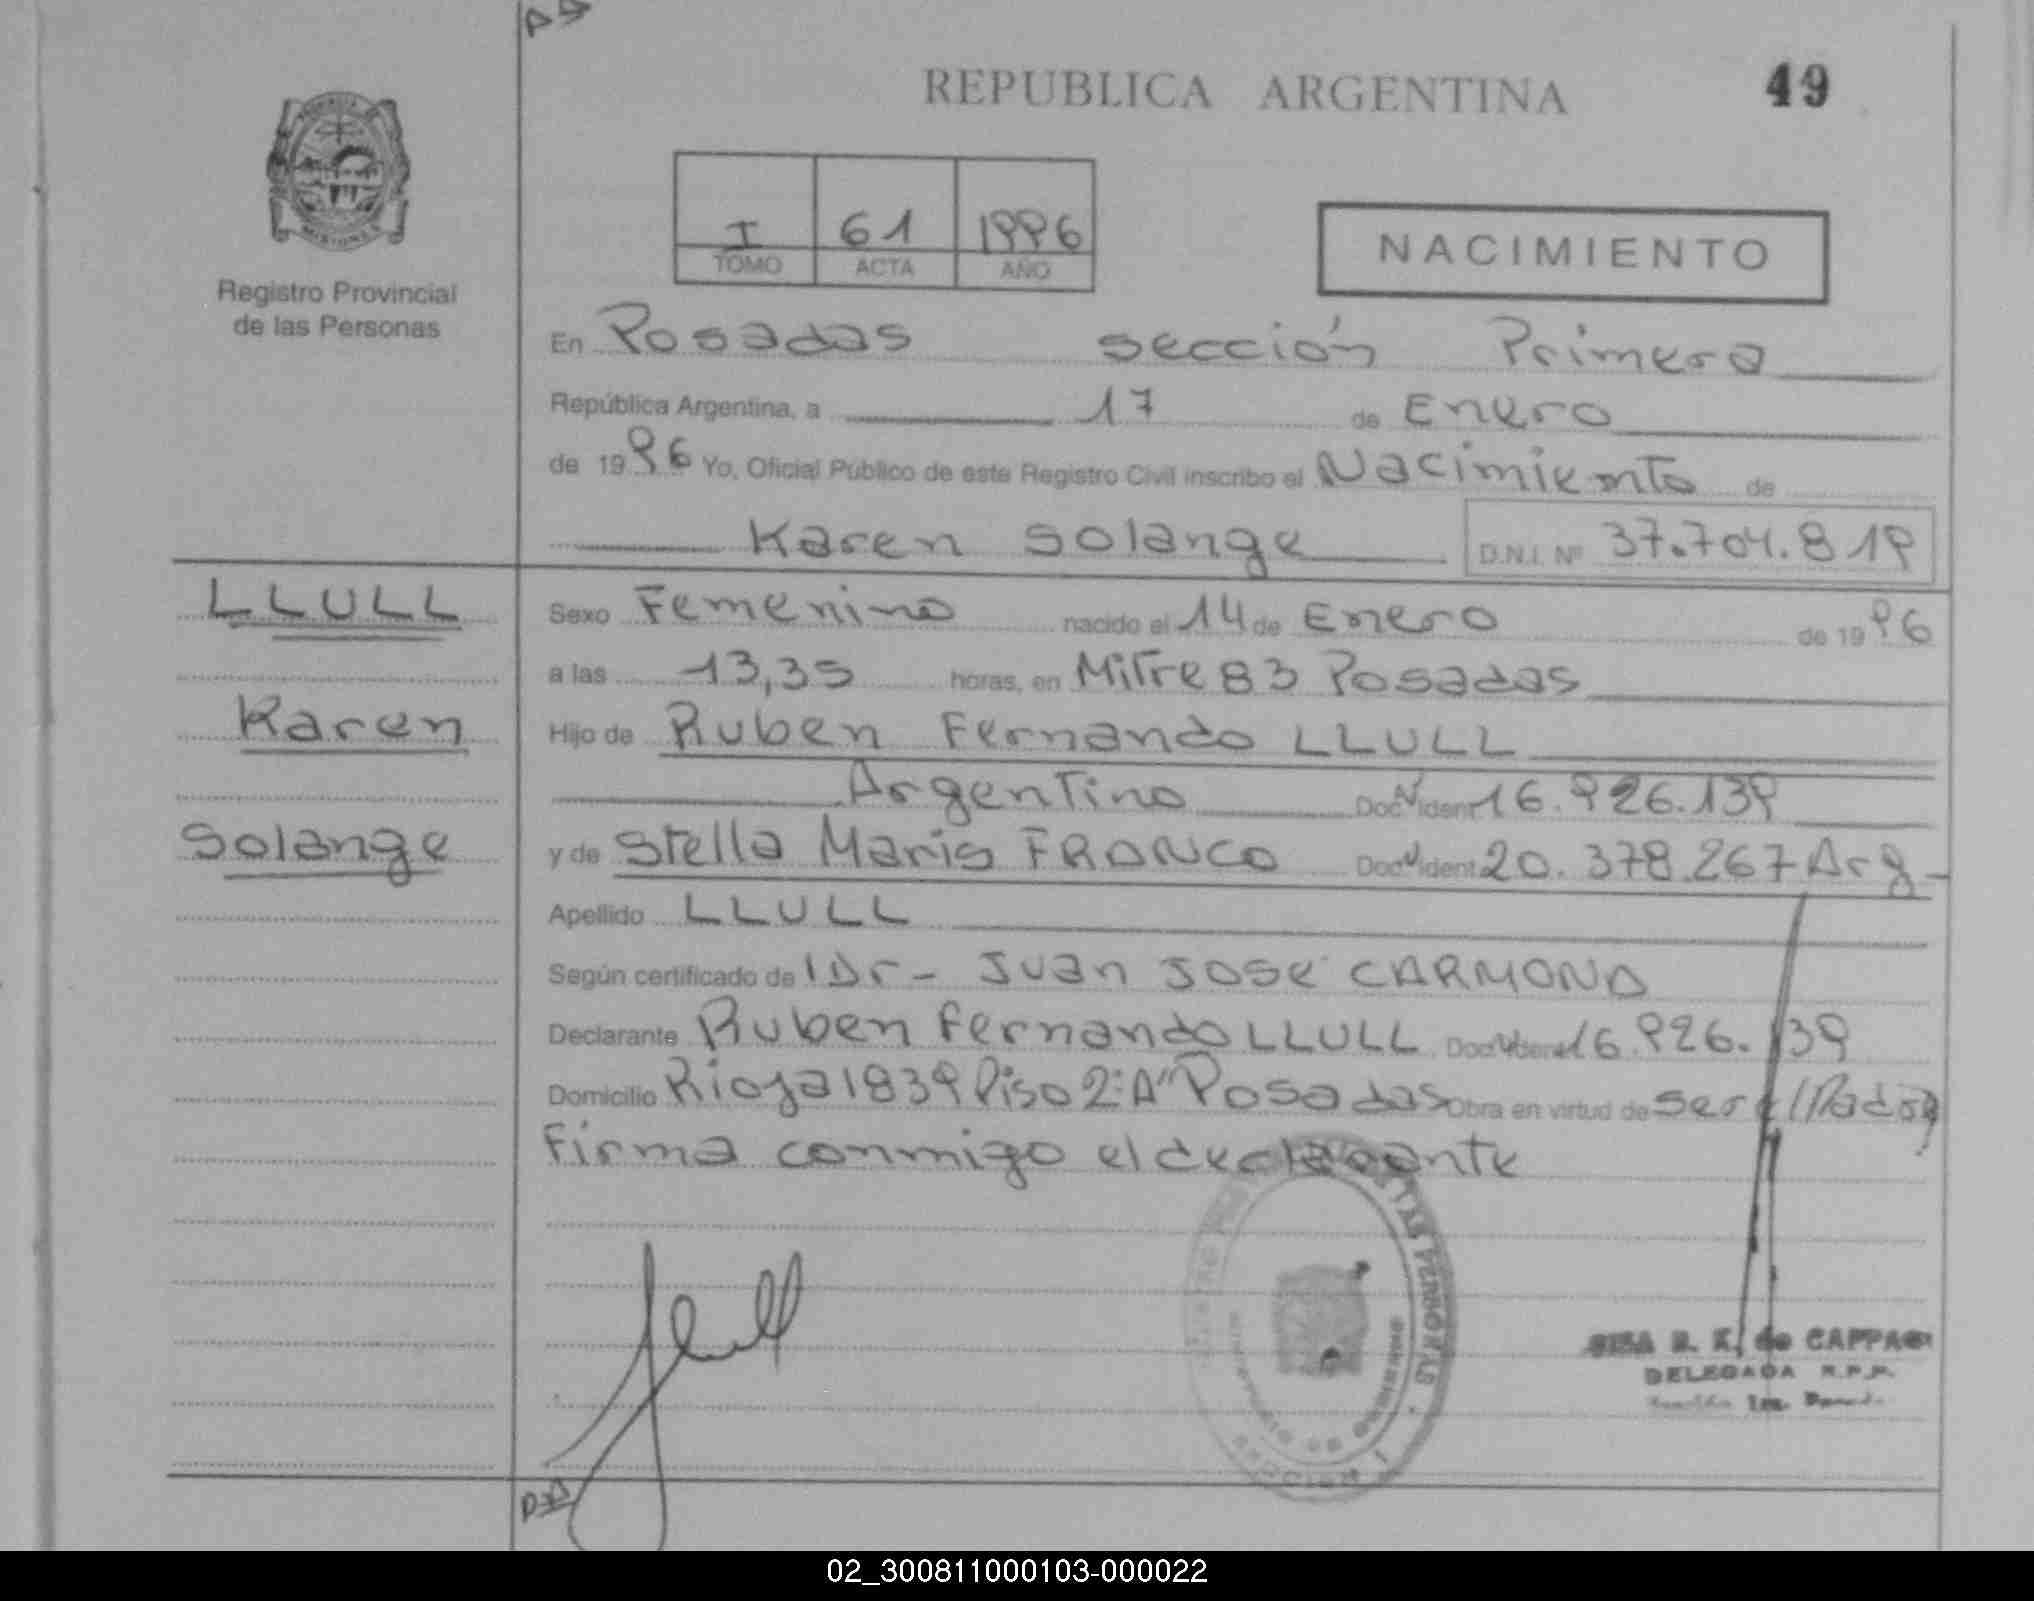 REPUBLICA ARGENTINA
49
MISIONES
Registro Provincial
de las Personas
I 61 1996
TOMO ACTA AÑO
NACIMIENTO
En Posadas sección Primera
República Argentina, a 17 de Enero
de 1996 Yo, Oficial Público de este Registro Civil inscribo el Nacimiento de
Karen Solange D.N.I. Nº 37.704.819
LLULL
Karen
Solange
Sexo Femenino nacido el 14 de Enero de 1996
a las 13,35 horas, en Mitre 83 Posadas
Hijo de Ruben Fernando LLULL
Argentino Doc. ident 16.926.139
y de Stella Maris FRANCO Doc. ident 20.378.267 Arg-
Apellido LLULL
Según certificado de Dr- Juan José CARMONA
Declarante Ruben Fernando LLULL Doc. ident 16.926.139
Domicilio Rioja 1839 Piso 2º "A" Posadas Obra en virtud de ser el Padre
Firma conmigo el declarante
de CAPPA
DELEGADA R.P.P.
02_300811000103-000022